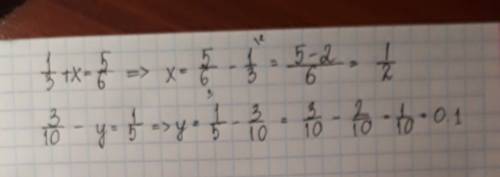 1/3 + x = 5/6 => x = 5/6 - 1/3 \2 = 5-2/6 = 1/2
3/10 - y = 1/5 => y = 1/5 - 3/10 = 3/10 - 2/10 = 1/10 = 0.1